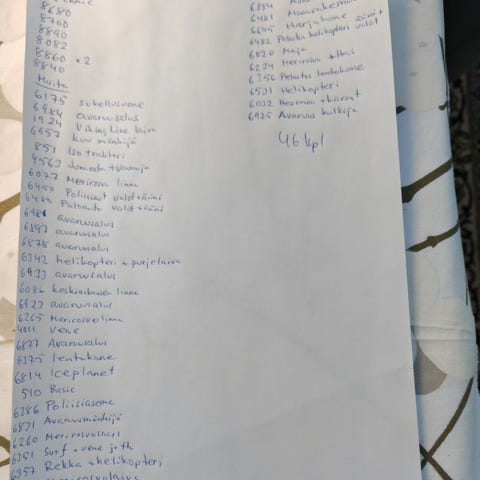 8680
8700
8890
8082
8860 x 2
8840
Muita
6175 sukellusvene
6984 avaruusalus
1924 Viking line laiva
6957 kuu mönkijä
851 Iso traktori
4563 Junarata + juna
6077 Merirosvo linna
6450 Poliisiaut valot + ääni
6480 Paloauto valot + ääni
6981 avaruusalus
6897 avaruusalus
6878 avaruusalus
6342 helikopteri + purjelaiva
6933 avaruusalus
6086 keskiaikainen linna
6923 avaruusalus
6265 Merirosvolinna
4011 vene
6877 Avaruusalus
6375 lentokone
6814 Iceplanet
510 Basic
6386 Poliisiasema
6871 Avaruusmönkijä
6260 Merirosvosaari
6351 Surf + vene
6357 Rekka + helikopteri
6481
6645 Harjakone
6482 Pelastus helikopteri valot
6020 Maja
6234 Merirosvo
6356 Pelastus lentokone
6531 Helikopteri
6032 Hevonen + kärryt
6925 Avaruus kulkija
46 kpl